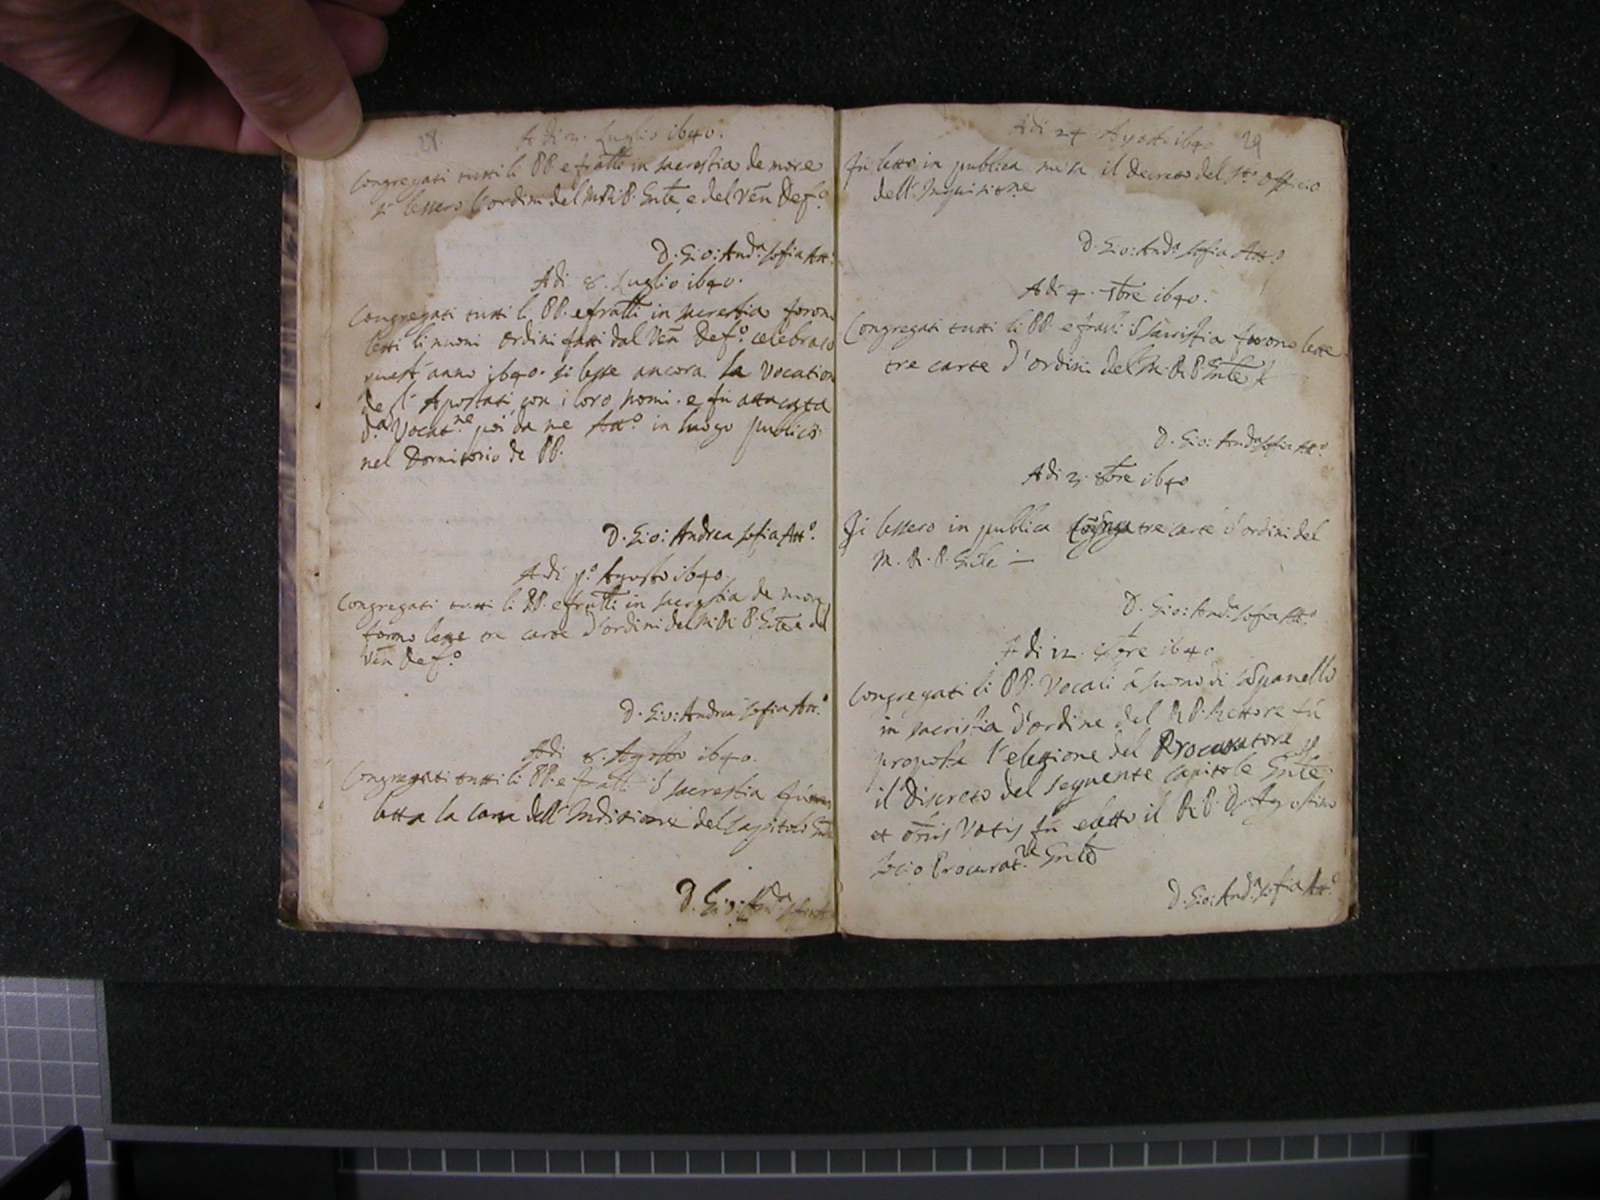 28.
Adi 2. Luglio 1640.
Congregati tutti li PP. e fratelli in sacrestia de more
si lessero l'ordini del M.R.P. Gnle, e del Ven Def.o
D. Gio: And.a Sofia Att.o
Adi 8. Luglio 1640.
Congregati tutti li PP. e fratelli in sacrestia forono
letti li nuoui ordini fatti dal Ven Def.o celebrato
quest'anno 1640. si lesse ancora la Vocation
degl'Apostati con i loro nomi. e fù attacata
d.a Vocat.ne poi da me Att.o in luogo publico
nel Dormitorio de PP.
D. Gio: Andrea Sofia Att.o
Adi p.o Agosto 1640.
Congregati tutti li PP. e fratelli in sacrestia de more
forno lette tre carte d'ordini del M.R.P. Gnle e del
Ven Def.o
D. Gio: Andrea Sofia Att.o
Adi 8. Agosto 1640.
Congregati tutti li PP. e fratelli i sacrestia fù
letta la carta dell'Inditione del Capitolo Gnle
D. Gio: And.a Sofia
29
Adi 24 Agosto 1640
Fù letto in publica mesa il decreto del S.to Officio
dell'Inquisitione
D. Gio: And.a Sofia Att.o
Adi 4. 7bre 1640.
Congregati tutti li PP. e frat.i i sacristia forono lette
tre carte d'ordini del M.R.P. Gnle
D. Gio: And.a Sofia Att.o
Adi 2. 8bre 1640
Si lessero in publica tre carte d'ordini del
M.R.P. Gnle —
D. Gio: And.a Sofia Att.o
Adi 12. 1640
Congregati li PP. Vocali à suono di campanello
in sacristia d'ordine del R.P. Rettore fù
proposta l'elettione del Procuratore
il Discreto del seguente Capitolo Gnle
et omnis Votis fù eletto il R.P. D. Agostino
Socio Procurat.re Gnle
D. Gio: And.a Sofia Att.o